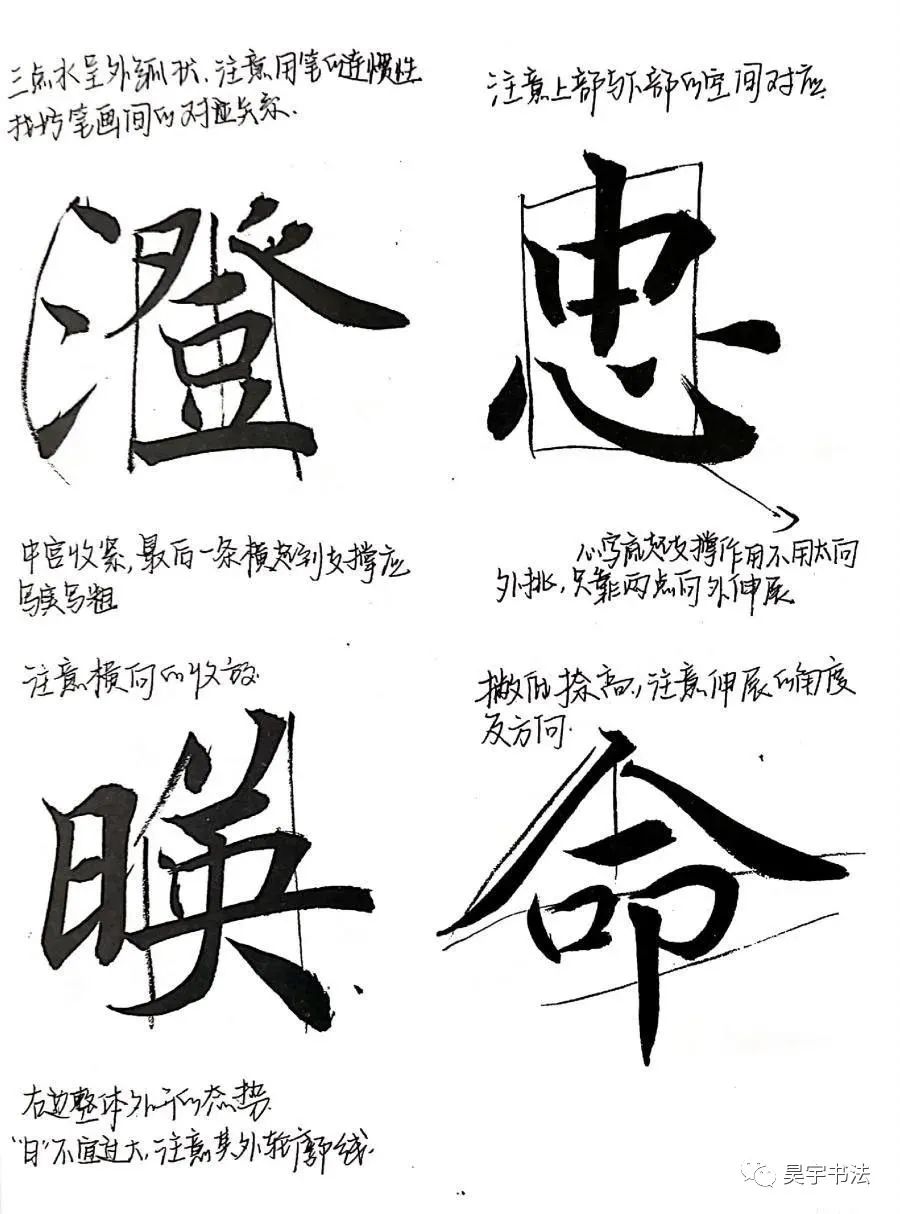 三点水呈外弧状、注意用笔的连惯性
找好笔画间的对应关系.
澄
中宫收紧,最后一条横起到支撑应
写实写粗
注意上部与下部的空间对应.
忠
心写宽起支撑作用不用太向
外挑,只靠两点向外伸展.
注意横向的收放.
暎
右边整体外 的态势.
"日"不宜过大,注意其外轮廓线.
撇低捺高,注意伸展的角度
及方向.
命
昊宇书法